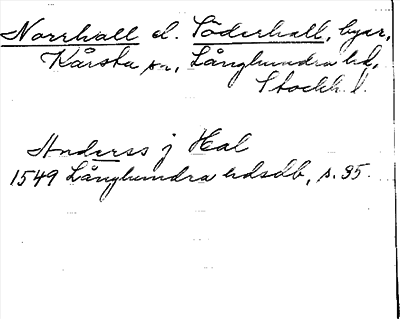 Norrhall el. Söderhall, byar,
Kårsta sn, Långhundra hd,
Stockh. l.
Anderss j Hal
1549 Långhundra hdsdb, s. 95.